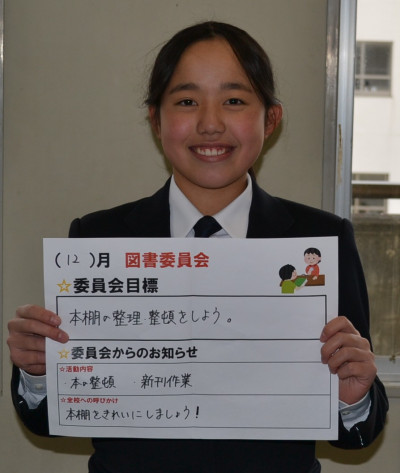 ( 12 )月 図書委員会
☆委員会目標
本棚の整理・整頓をしよう。
☆委員会からのお知らせ
☆活動内容
・本の整頓 ・新刊作業
☆全校への呼びかけ
本棚をきれいにしましょう!